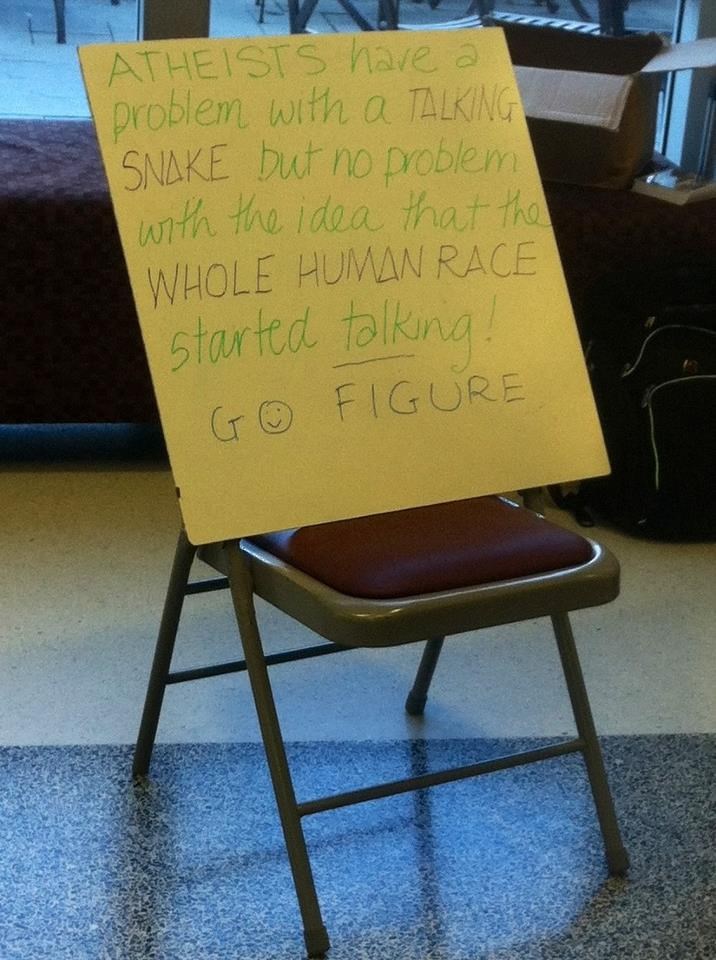 ATHEISTS have a
problem with a TALKING
SNAKE but no problem
with the idea that the
WHOLE HUMAN RACE
started talking!
G☺ FIGURE